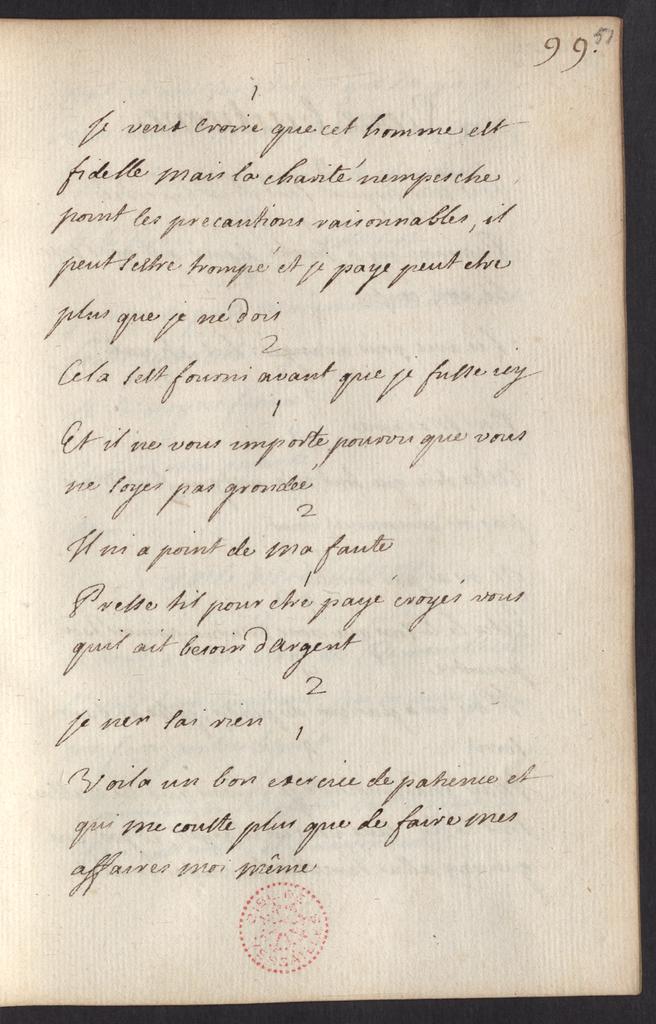 99. 51
1
je veux croire que cet homme est
fidelle mais la charité nempesche
point les precautions raisonnables, il
peut sestre trompé et je paye peut etre
plus que je ne dois
2
Cela sest fourni avant que je fusse icy
1
Et il ne vous importe pourvu que vous
ne soyes pas grondée
2
Il ni a point de ma faute
1
Presse til pour etre payé croyés vous
quil ait besoin dargent
2
je nen sai rien
1
Voila un bon exercice de patience et
qui me coutte plus que de faire mes
affaires moi même
BIBL. DE VERSAILLES